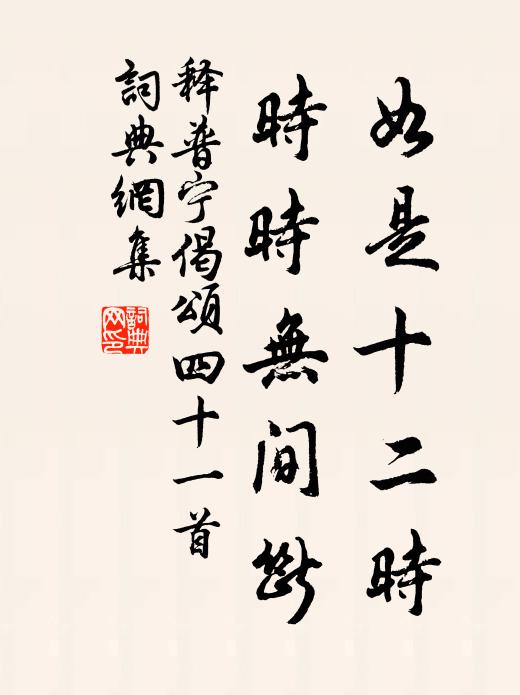 如是十二時
時時無間斷
释普宁偈頌四十一首
詞典網集
詞典网印